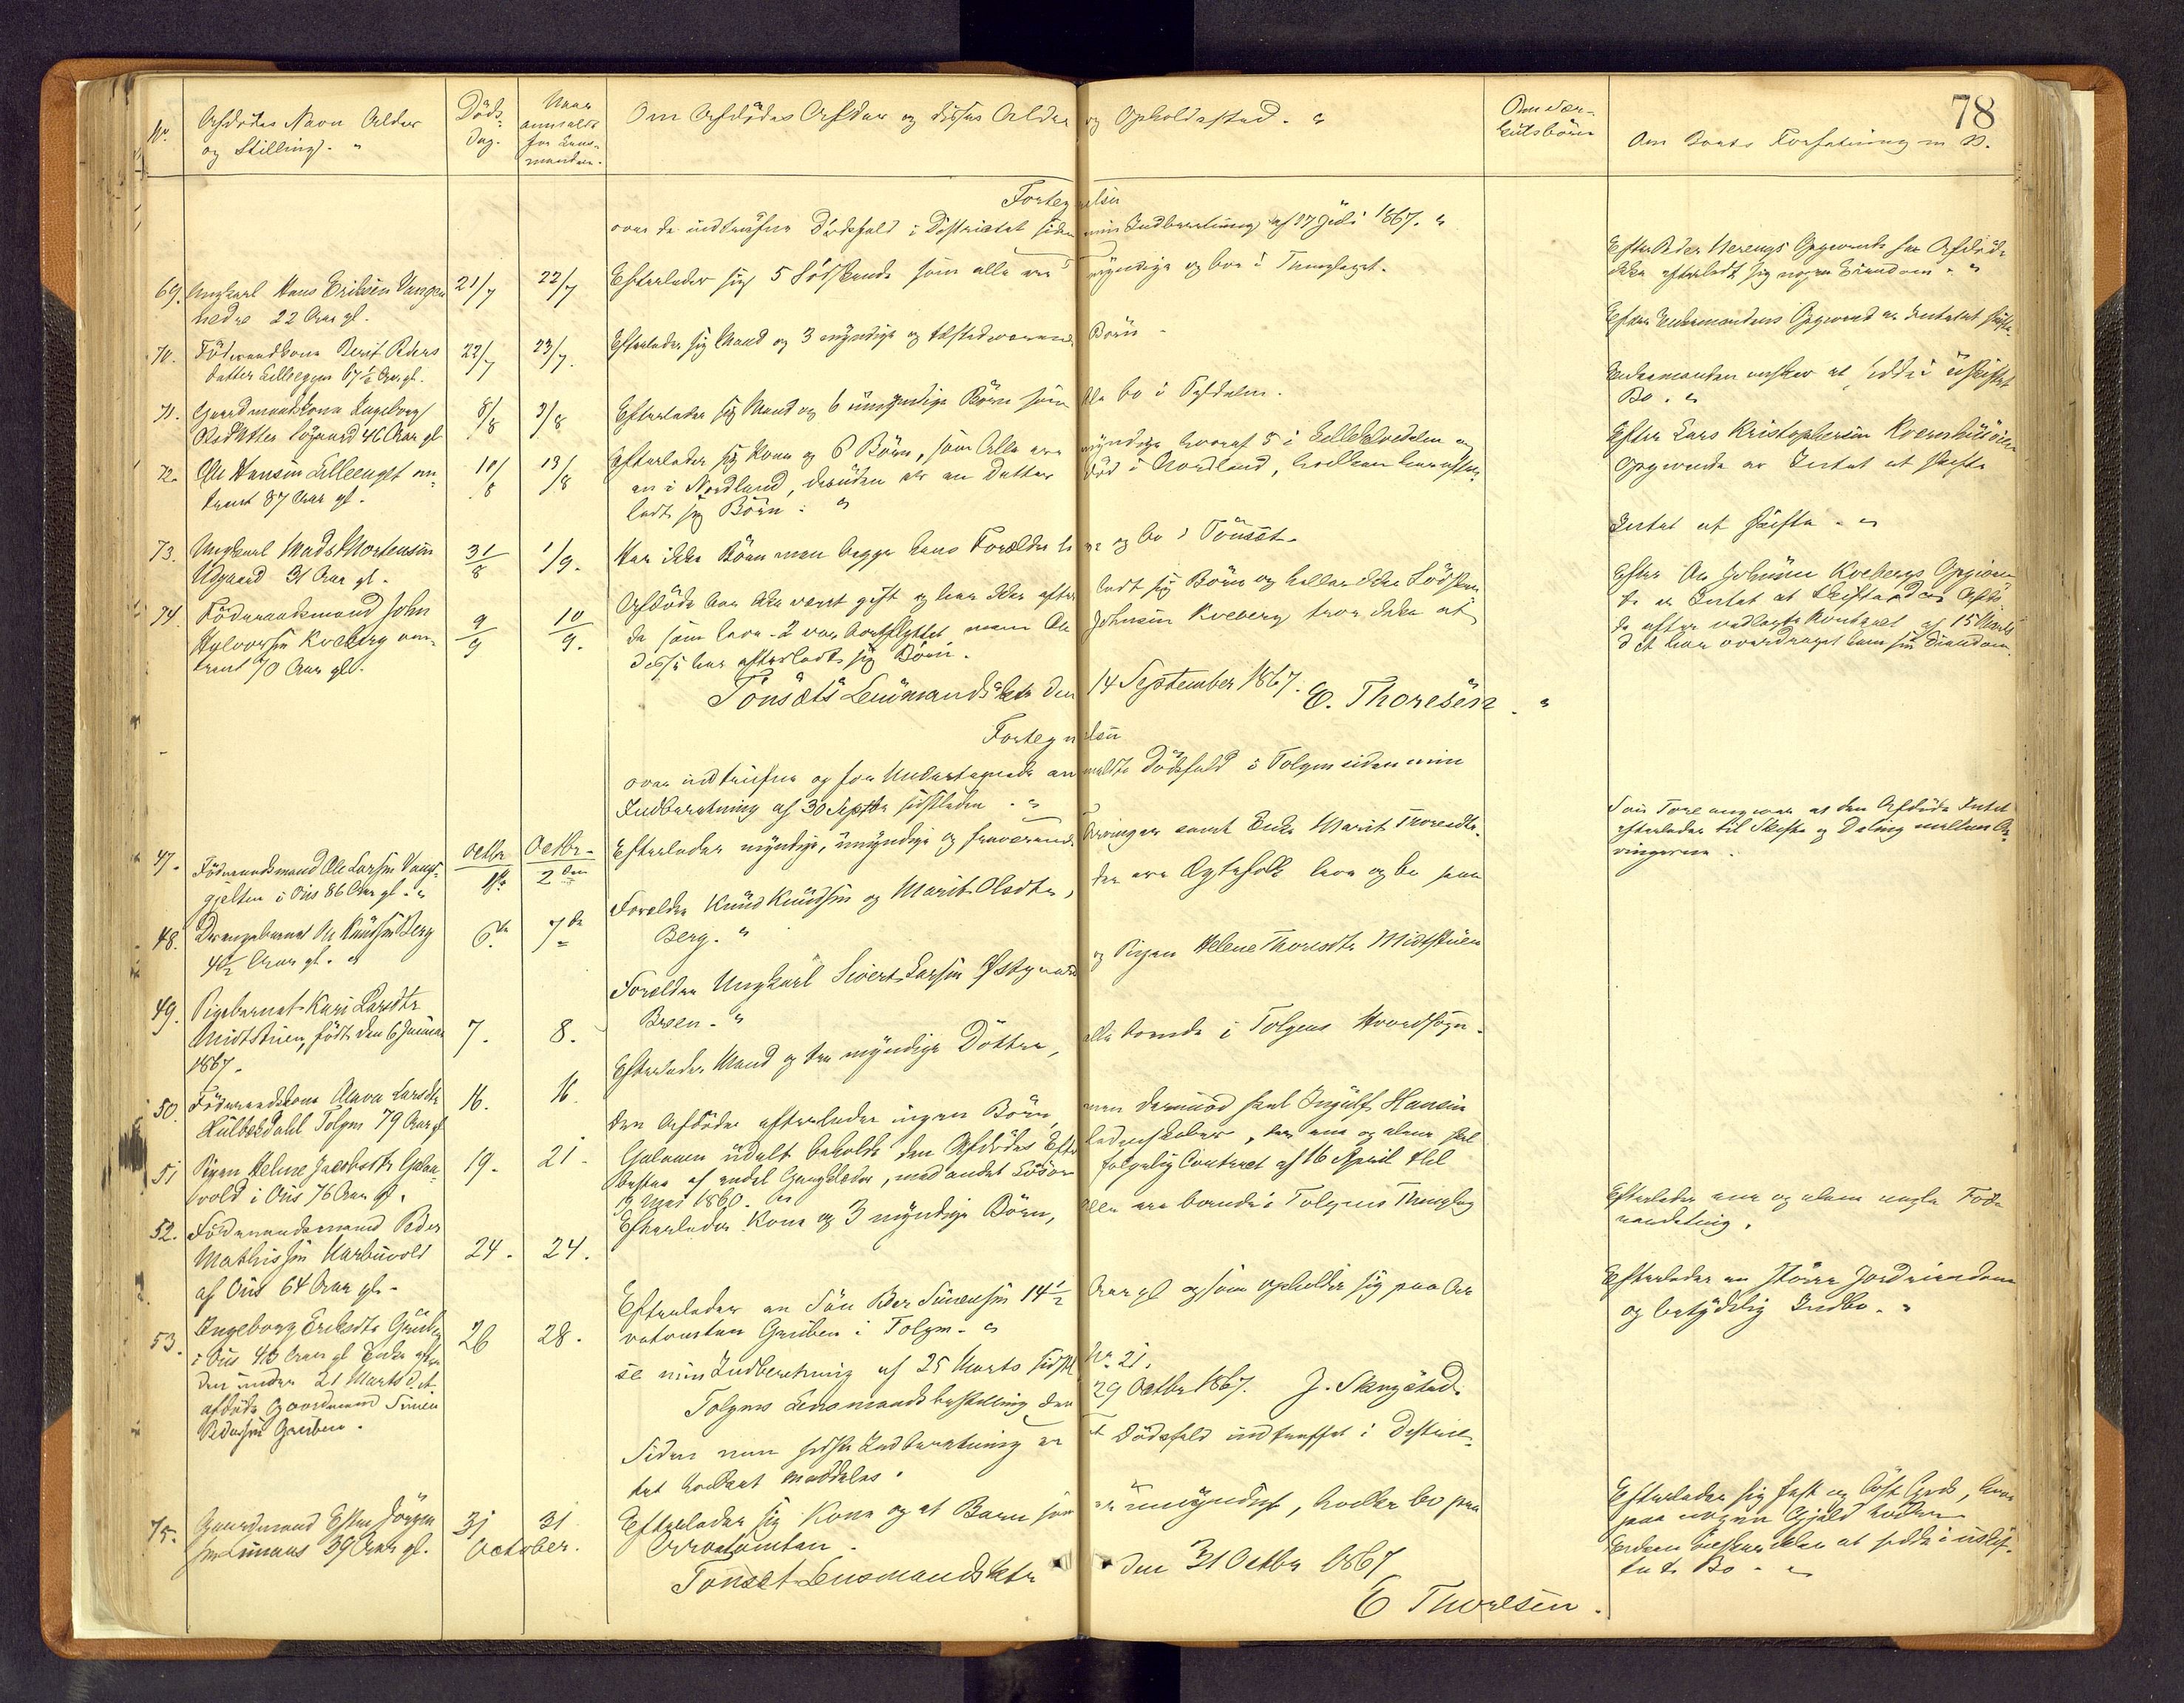 78
No.
Afdødes Navn Alder
og Stilling. "
Døds-
dag.
Naar
anmeldt
for Lens-
manden.
Om Afdødes Arfver og disses Alder og Opholdssted. "
Om
Børn
Om Boets Forfatning m V.
Fortegnelse
over de indtrufne Dødsfald i Districtet siden min Indberetning af 17 Juli 1867. "
69. Ungkarl Hans Eriksen Vangen
nedre 22 Aar gl.
21/7
22/7
Efterlader sig 5 Södskende som alle ere myndige og boe i Thinglaget.
Efter Peder Opgivende har Afdöde
ikke efterladt sig nogen Eiendom. "
70. Föderaadskone Berit Peders
datter Lilleeggen 67 1/2 Aar gl.
22/7
23/7.
Efterlader sig Mand og 3 myndige og tilstedeværende Börn -
Efter Enkemandens Opgivende er Intet at skifte.
71. Gaardmandskone Ingeborg
Olsdatter 46 Aar gl
8/8
9/8
Efterlader sig Mand og 6 umyndige Börn som alle bo i Tyldalen.
Enkemanden ønsker at sidde i uskiftet
Bo. "
72. Ole Hansen Lilleenget om-
trent 87 Aar gl.
10/8
13/8
Efterlader sig Kone og 6 Börn, som Alle ere myndige hvoraf 5 i Lilleelvedalen og
en i Nordland, desuden er en Datter död i Nordland, hvilken har efter-
ladt sig Börn. "
Efter Lars Kristophersen
Opgivende er Intet at skifte
73. Ungkarl Mads Mortensen
Udgaard 31 Aar gl.
31/8
1/9.
Har ikke Börn men begge hans Forældre leve og bo i Tönset.
Intet at skifte. "
74. Föderaadsmand John
Halvorsen Kveberg om-
trent 70 Aar gl.
9/9
10/9.
Afdöde har ikke været gift og har ikke efterladt sig Börn og heller ikke Södsken-
de som leve - 2 var bortflyttet men Ole Johnsen Kveberg troer ikke at
disse har efterladt sig Börn.
Efter Ole Johnsen Kvebergs Opgiven-
de er Intet at skifte da Afdö-
de efter vedlagte Kontrakt af 15 Marts
d. A. har overdraget ham sin Eiendom.
Tönsets Lensmandskontr den 14 September 1867. E. Thoresen. "
Fortegnelse
over indtrufne og for Undertegnede anmeldte Dödsfald i Tolgen siden min
Indberetning af 30 Septbr sidstleden. "
47. Föderaadsmand Ole Larsen Vangs-
gjelten i Øus 86 Aar gl. "
Octbr
1ste
Octbr.
2den
Efterlader myndige, umyndige og fraværende Arvinger samt Enke Marit Thoresdtr.
Son Tore angiver at den Afdöde Intet
efterlader til Skifte og Deling mellem Ar-
vingerne.
48. Drengebarnet Ole Knudsen Berg
4 1/2 Aar gl. "
6te
7de
Forældre Knud Knudsen og Marit Olsdtr, der ere Ægtefolk leve og bo paa
Berg. "
49. Pigebarnet Kari Larsdtr
Midtstuen, födt den 6 Januar
1867.
7.
8.
Forældre Ungkarl Sivert Larsen Østgaard og Pigen Helene Thoresdtr Midtstuen
50. Föderaadskone Larsdtr
Tolgen 79 Aar gl
16.
16.
Efterlader Mand og tre myndige Döttre, alle boende i Tolgens Hovedsogn.
51 Pigen Helene Jacobsdtr Galaa-
vold i Øus 76 Aar gl.
19.
21.
Den Afdöde efterlader ingen Börn, men derimod skal Ingulf Hansen
Galaaen udelt beholde den Afdödes Efterladenskaber, der ene og alene skal
bestaa af endel Gangklæder, med andet Lösöre ifølge Contract af 16 April thl
9 Mai 1860. "
52. Föderaadsmand Peder
Mathissen
af Øus 64 Aar gl.
24.
24.
Efterlader Kone og 3 myndige Börn, alle ere boende i Tolgens Thinglag
Efterlader ene og alene nogle Föde-
raadsting.
53. Ingeborg Eriksdtr Gruben
i Øus 43 Aar gl Enke efter
den under 21 Marts d. A.
afdöde Gaardmand Simen
Pedersen Gruben.
26
28.
Efterlader en Sön Peder Simensen 14 1/2 Aar gl og som opholder sig paa Ar-
vetomten Gruben i Tolgen. "
se min Indberetning af 25 Marts sidstl No 21.
Efterlader en större Jordeiendom
og betydelig Indbo. "
Tolgens Lensmandsbestilling den 29 Octbr 1867. J.
Siden min sidste Indberetning er et Dödsfald indtruffet i Distric-
tet hvilket meddeles.
75. Gaardmand Esten Jörgen-
sen 39 Aar gl.
31
October.
31
Efterlader sig Kone og et Barn som er umyndigt, hvilke bo paa
Arvetomten.
Efterlader sig fast og löst Gods, hvor-
paa nogen Gjæld hviler.
Enken ønsker at sidde i uskif-
tet Bo. "
Tönset Lensmandsktr den 31 Octbr 1867
E Thoresen.